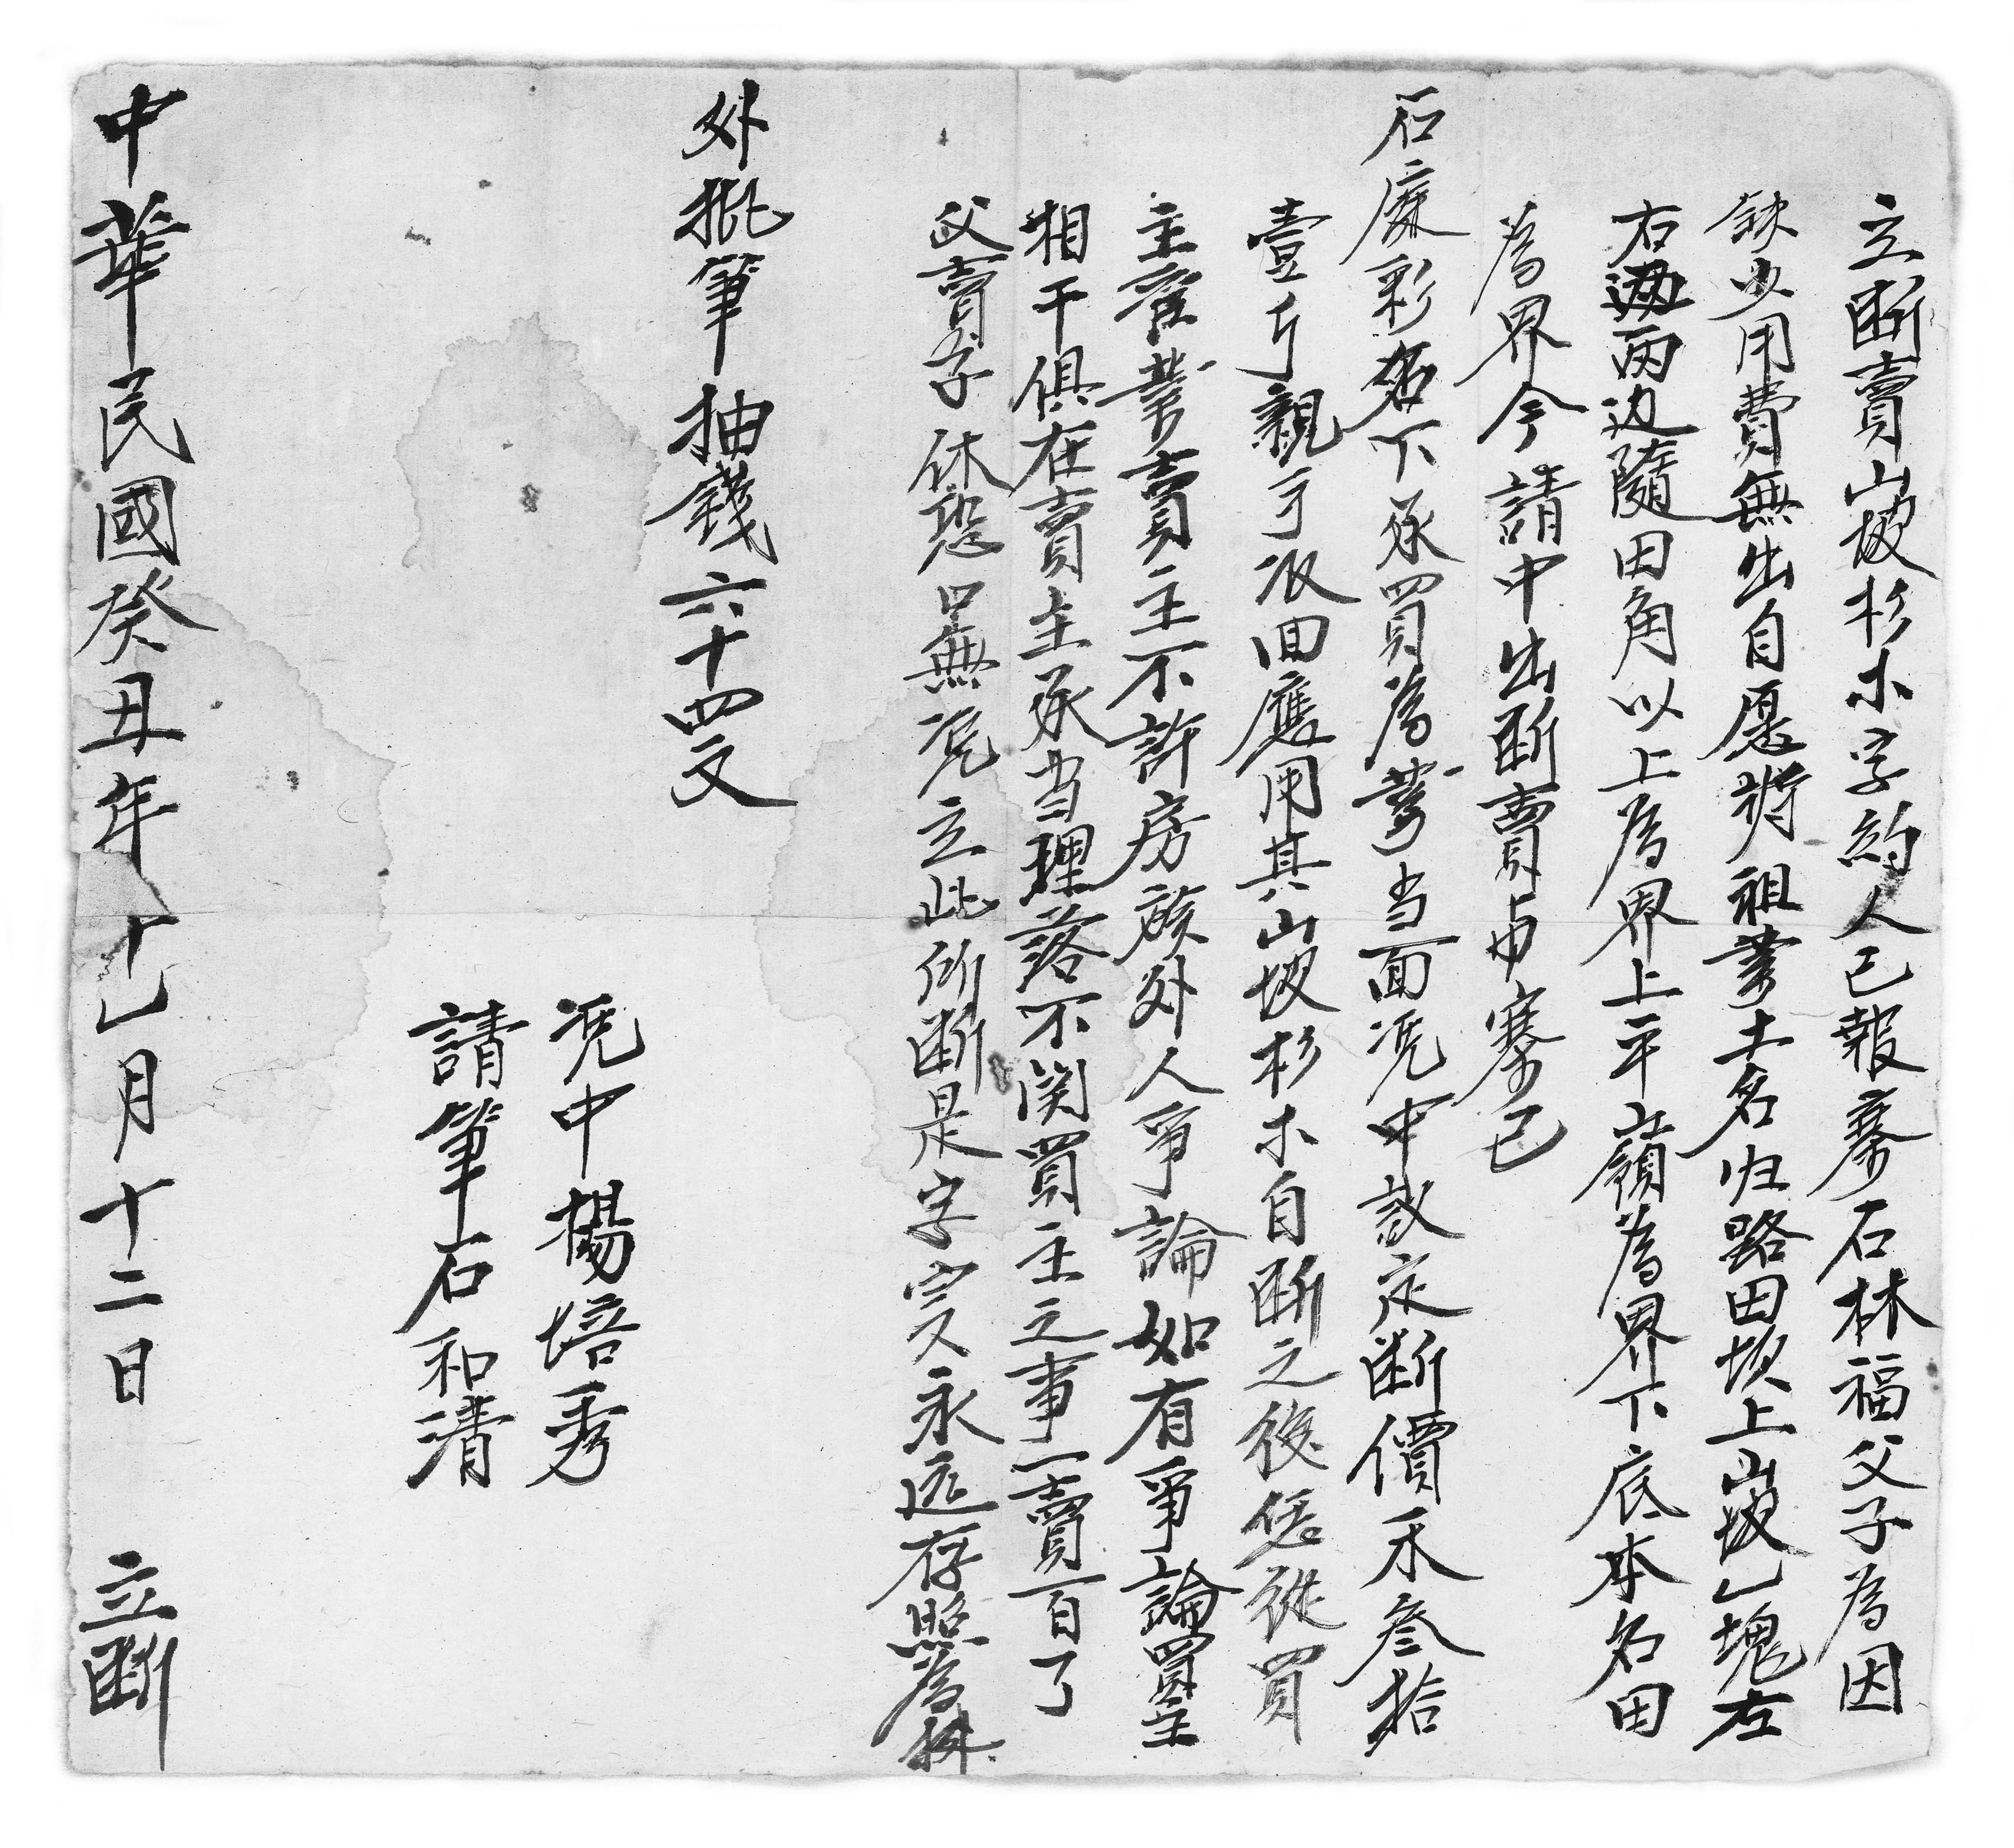 立断賣山坡杉木字約人已報寨石林福父子為因
缺少用費無出自愿將祖業土名归路田坎上山坡乙塊左
右邊兩边隨田角以上為界上平嶺為界下底本名田
為界今請中出断賣与寨已
石廉彩名下承買為業当面凭中議定断價禾叁拾
壹斤親手收回應用其山坡杉木自断之後恁從買
主管業賣主不許房族外人爭論如有爭論買主
相干俱在賣主承当理落不関買主之事一賣百了
父賣子休恐口無凭立此所断是字實永远存照為㯋
外批筆抽錢六十四文
凭中楊培秀
請筆石和清
中華民國癸丑年七月十二日 立断